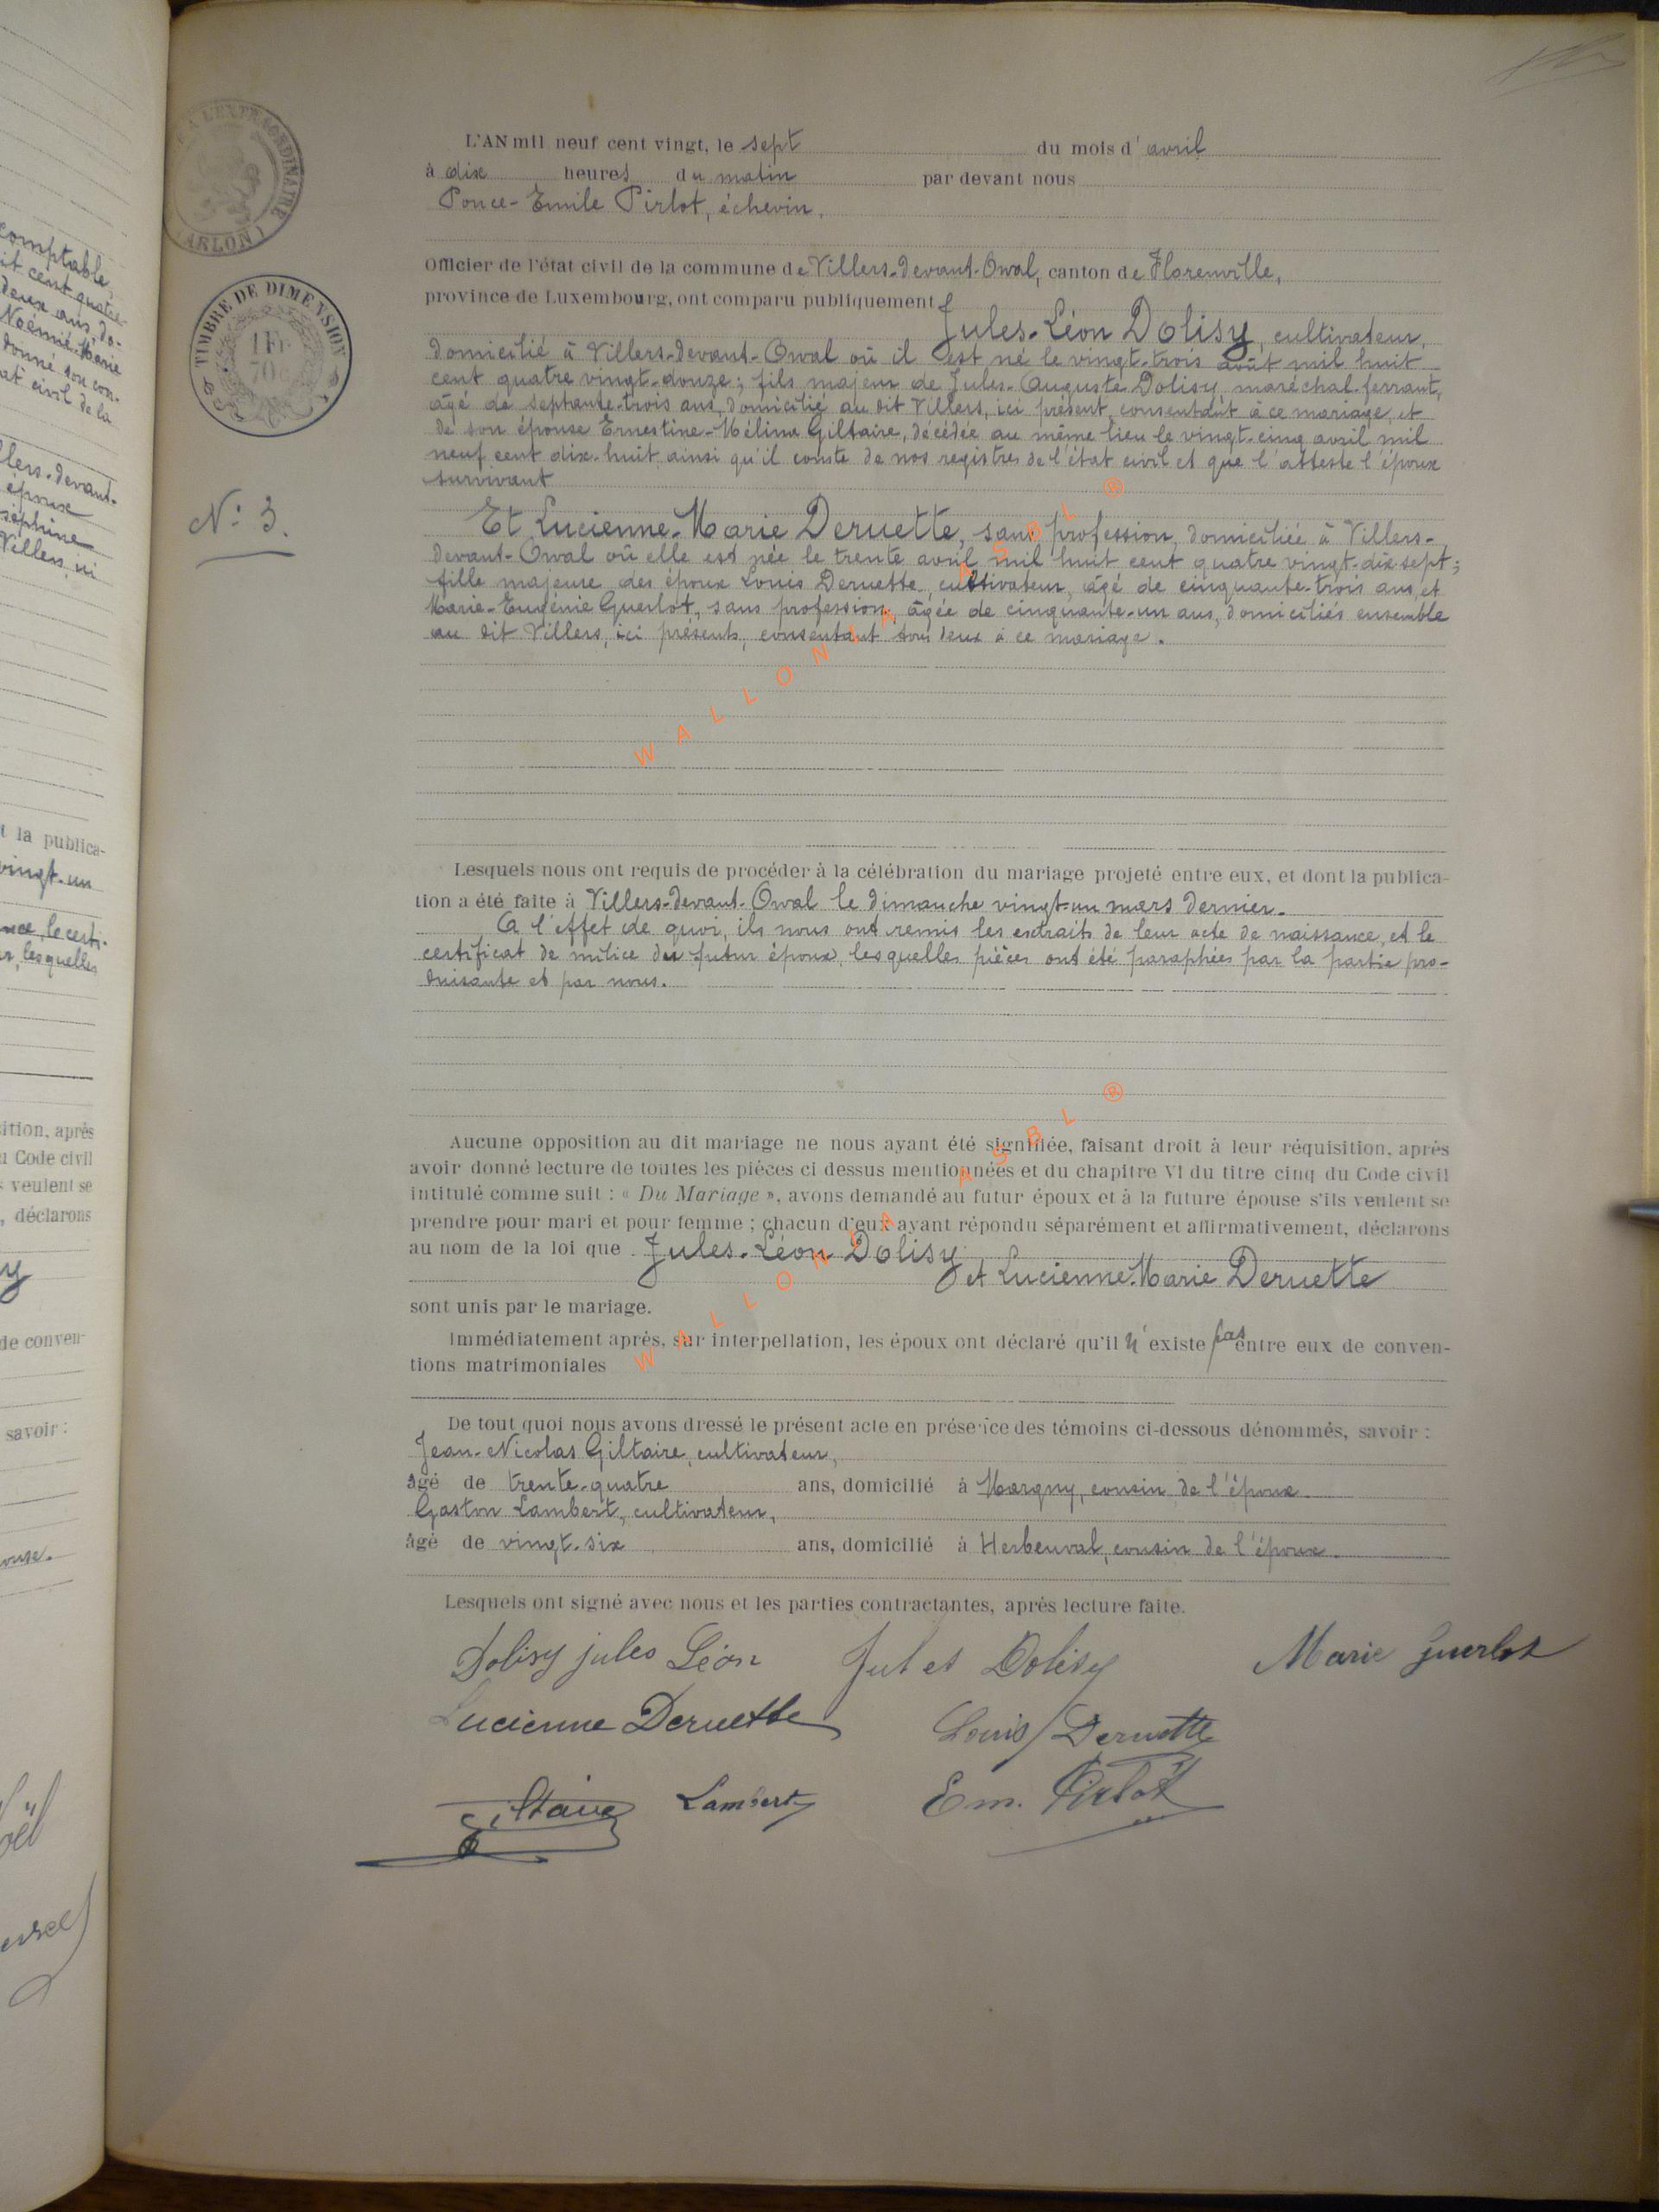 L'AN mil neuf cent vingt, le sept du mois d'avril
à dix heures du matin par devant nous
Ponce-Emile Pirlot, échevin,
officier de l'état civil de la commune de Villers-devant-Orval, canton de Florenville,
province de Luxembourg, ont comparu publiquement
Jules-Léon Dolisy, cultivateur,
domicilié à Villers-devant-Orval où il est né le vingt-trois août mil huit
cent quatre vingt-douze; fils majeur de Jules-Auguste Dolisy, maréchal-ferrant,
âgé de septante-trois ans, domicilié au dit Villers, ici présent, consentant à ce mariage, et
de son épouse Ernestine-Mélina Giltaire, décédée au même lieu le vingt-cinq avril mil
neuf cent dix-huit ainsi qu'il conste de nos registres de l'état civil et que l'atteste l'époux
survivant
N° 3.
Et Lucienne-Marie Deruette, sans profession, domiciliée à Villers-
devant-Orval où elle est née le trente avril mil huit cent quatre vingt-dix-sept;
fille majeure des époux Louis Deruette, cultivateur, âgé de cinquante-trois ans, et
Marie-Eugénie Guerlot, sans profession, âgée de cinquante-un ans, domiciliés ensemble
au dit Villers, ici présents, consentant tous deux à ce mariage.
Lesquels nous ont requis de procéder à la célébration du mariage projeté entre eux, et dont la publica-
tion a été faite à Villers-devant-Orval le dimanche vingt-un mars dernier.
A l'effet de quoi, ils nous ont remis les extraits de leur acte de naissance, et le
certificat de milice du futur époux, lesquelles pièces ont été paraphées par la partie pro-
duisante et par nous.
Aucune opposition au dit mariage ne nous ayant été signifiée, faisant droit à leur réquisition, après
avoir donné lecture de toutes les pièces ci dessus mentionnées et du chapitre VI du titre cinq du Code civil
intitulé comme suit : « Du Mariage », avons demandé au futur époux et à la future épouse s'ils veulent se
prendre pour mari et pour femme ; chacun d'eux ayant répondu séparément et affirmativement, déclarons
au nom de la loi que Jules-Léon Dolisy
et Lucienne-Marie Deruette
sont unis par le mariage.
Immédiatement après, sur interpellation, les époux ont déclaré qu'il n'existe pas entre eux de conven-
tions matrimoniales
De tout quoi nous avons dressé le présent acte en présence des témoins ci-dessous dénommés, savoir :
Jean-Nicolas Giltaire, cultivateur,
âgé de trente-quatre ans, domicilié à Margny, cousin de l'époux.
Gaston Lambert, cultivateur,
âgé de vingt-six ans, domicilié à Herbeuval, cousin de l'époux.
Lesquels ont signé avec nous et les parties contractantes, après lecture faite.
Dolisy jules Léon Jules Dolisy Marie Guerlot
Lucienne Deruette Louis Deruette
Giltaire Lambert Em. Pirlot
TIMBRE DE DIMENSION
1 Fr
70c
(ARLON)
WALLONIA ASBL ®
WALLONIA ASBL ®
comptable,
deux ans, do-
Noémie-Marie
donné son con-
at civil de la
llers-devant-
épouse
séphine
Villers, ici
t la publica-
vingt-un
nce, le certi-
lesquelles
sition, après
u Code civil
s veulent se
, déclarons
de conven-
savoir :